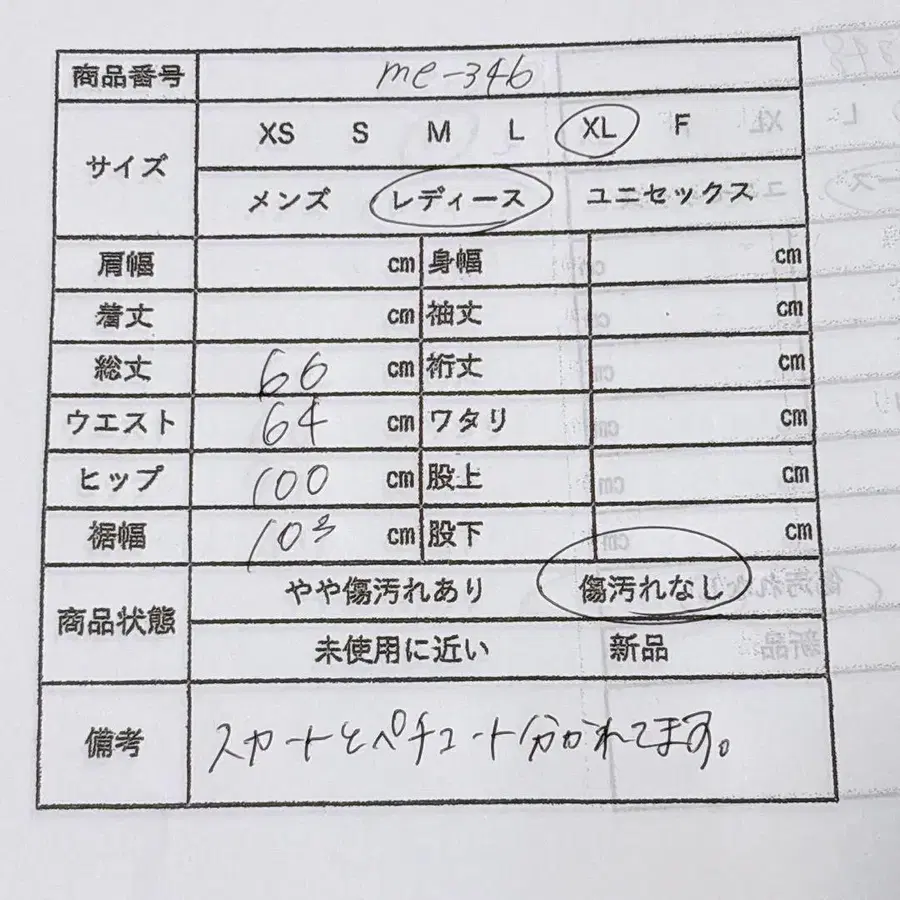 商品番号 me-346
サイズ XS S M L XL F
メンズ レディース ユニセックス
肩幅 cm 身幅 cm
着丈 cm 袖丈 cm
総丈 66 cm 裄丈 cm
ウエスト 64 cm ワタリ cm
ヒップ 100 cm 股上 cm
裾幅 103 cm 股下 cm
商品状態 やや傷汚れあり 傷汚れなし
未使用に近い 新品
備考 スカートとペチュート分かれてます。